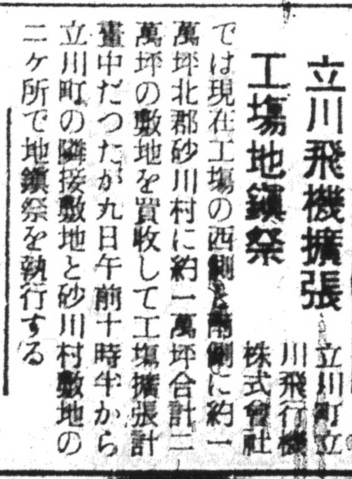 立川飛機擴張
工塲地鎭祭
立川町立
川飛行機
株式會社
では現在工塲の西側と南側に約一
萬坪北郡砂川村に約一萬坪合計二
萬坪の敷地を買收して工塲擴張計
畫中だつたが九日午前十時半から
立川町の隣接敷地と砂川村敷地の
二ケ所で地鎭祭を執行する